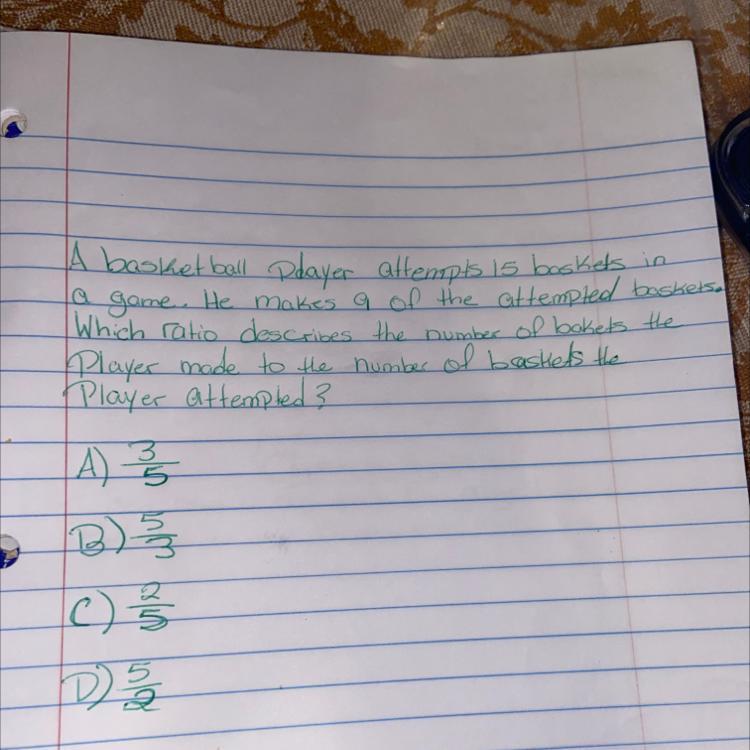 A basketball Pdayer attempts 15 baskets in
a game. He makes 9 of the attempted baskets.
Which ratio describes the number of bakets the
Player made to the number of baskets the
Player attempted?
A) 3/5
B) 5/3
C) 2/5
D) 5/2